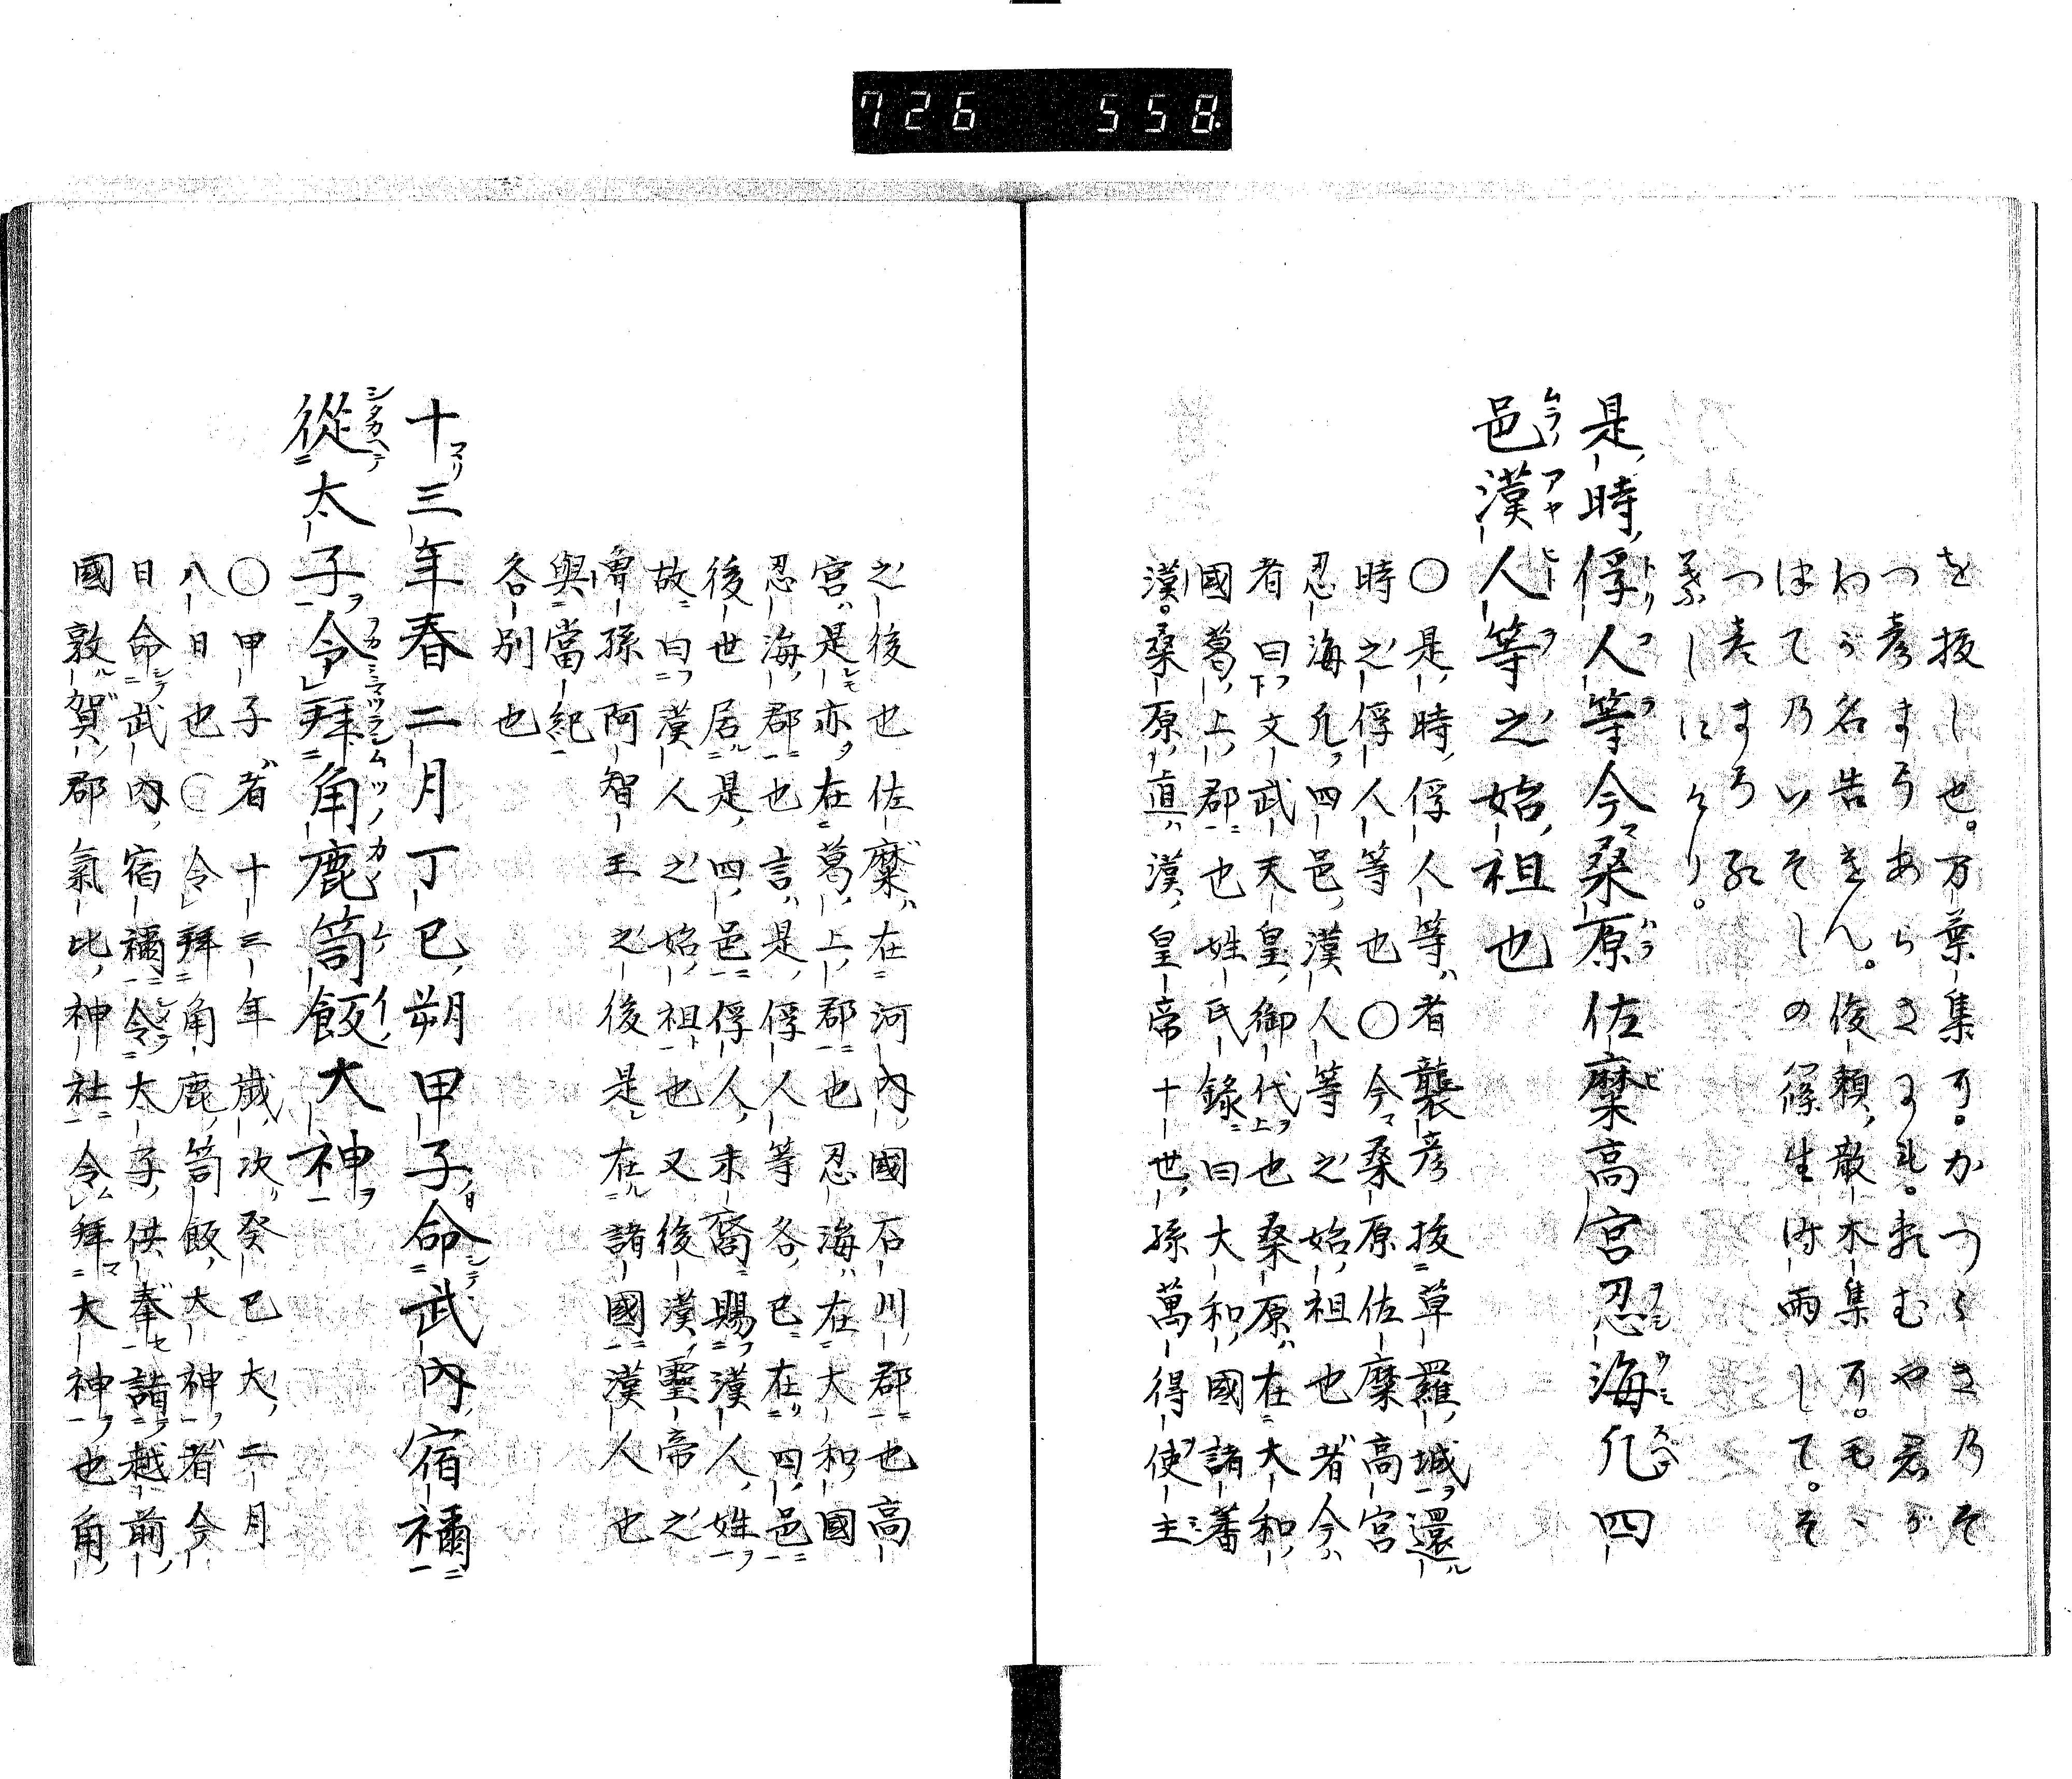 726 558
を抜し也。万葉集可。かつらき乃そ
つ彦まうあらきまれ。たむや君が
わが名告きん。俊頼散木集可。毛〻
はて乃いそしの篠生時雨して。そ
つ彦まうる
是時俘人等今桑原佐糜高宮忍海凡四
邑漢人等之始祖也
〇是時俘人等者襲彦抜草羅城還
時之俘人等也〇今桑原佐糜高宮
忍海凡四邑漢人等之始祖也者今
者曰文武天皇御代也桑原在大和
國葛上郡也姓氏錄曰大和國諸蕃
漢。桑原直漢皇帝十世孫萬得使主
之後也佐糜在河內國石川郡也高
宮是亦在葛上郡也忍海在大和國
忍海郡也言是俘人等各已在四邑
後世居是四邑俘人末裔賜漢人姓
故曰漢人之始祖也又後漢靈帝之
曾孫阿智王之後是在諸國漢人也
與當紀
各別也
十三年春二月丁巳朔甲子命武內宿禰
從太子令拜角鹿笥飯大神
〇甲子者十三年歲次癸巳大二月
八日也〇令拜角鹿笥飯大神者今
日命武內宿禰令太子供奉詣越前
國敦賀郡氣比神社令拜大神也角